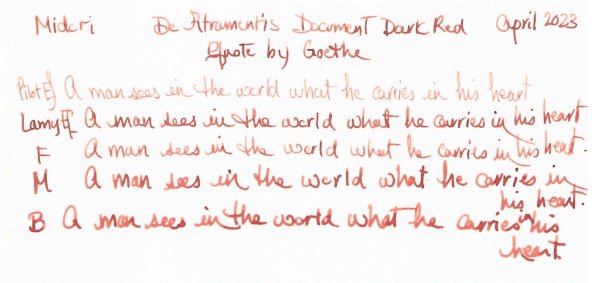 Midori De Atramentis Document Dark Red April 2023
Quote by Goethe
Pilot EF A man sees in the world what he carries in his heart
Lamy EF A man sees in the world what he carries in his heart
F A man sees in the world what he carries in his heart.
M A man sees in the world what he carries in
his heart.
B A man sees in the world what he carries in his
heart